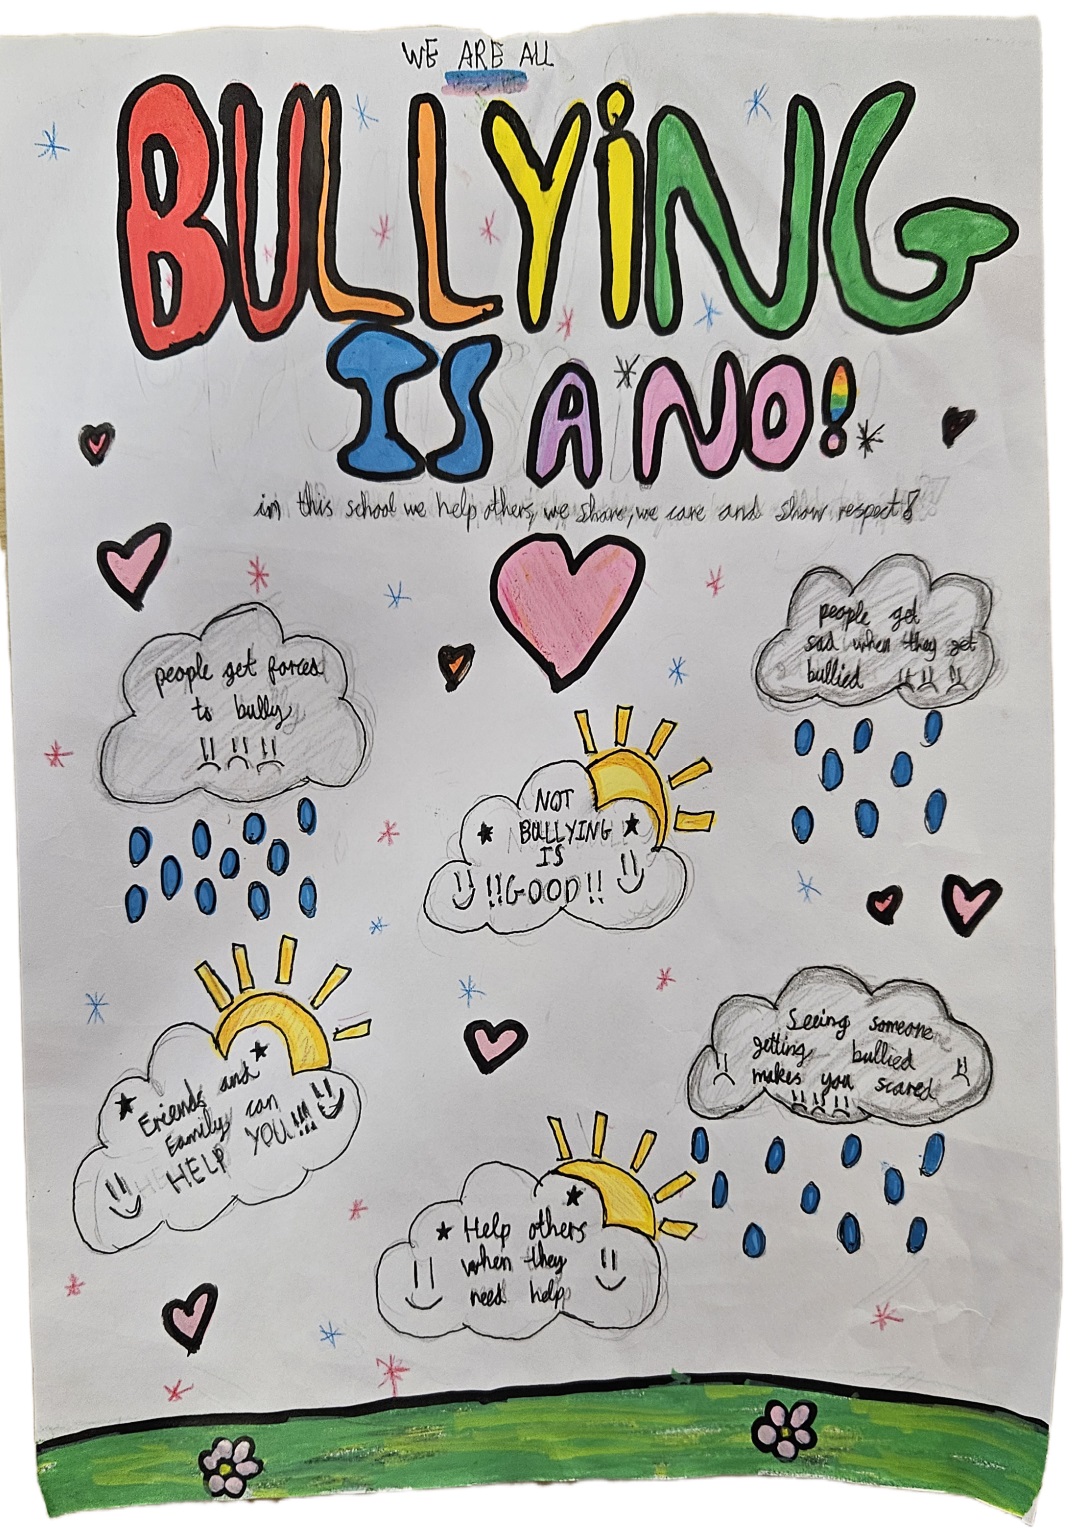 WE ARE ALL
BULLYiNG
IS A NO!
in this school we help others, we share, we care and show respect!
people get forced
to bully
people get
sad when they get
bullied
NOT
BULLYING
IS
!!GOOD!!
Friends and
Family can
HELP YOU!!!
Seeing someone
getting bullied
makes you scared
Help others
when they
need help